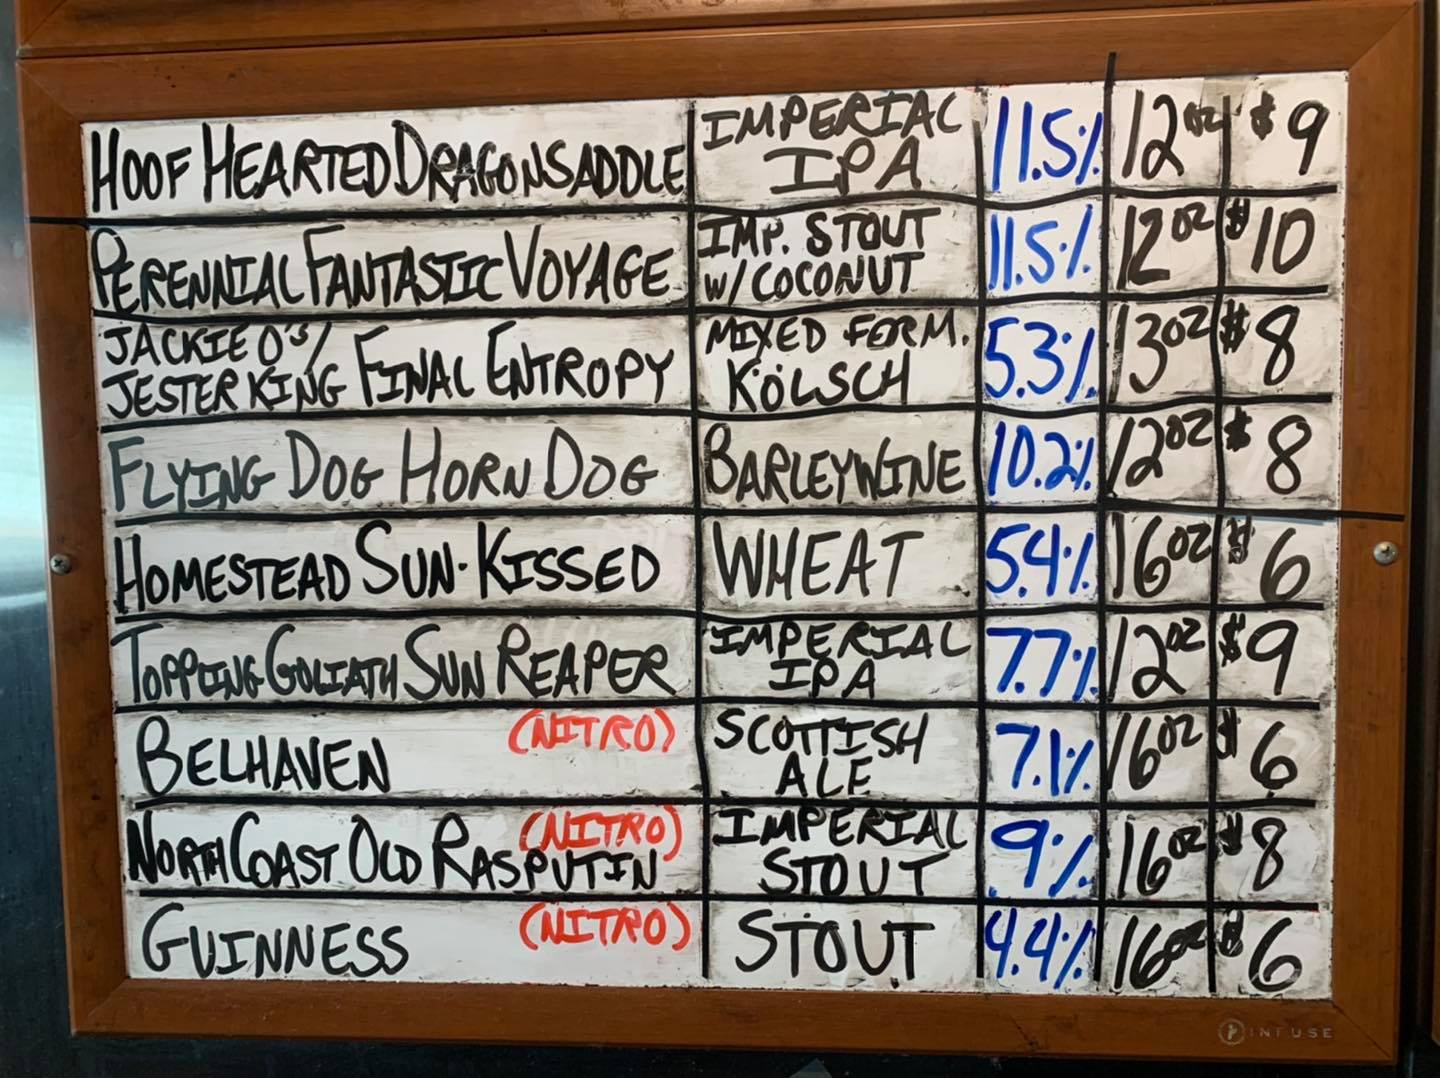 HOOF HEARTED DRAGONSADDLE IMPERIAL IPA 11.5% 12oz $9
PERENNIAL FANTASTIC VOYAGE IMP. STOUT W/COCONUT 11.5% 12oz $10
JACKIE O'S/ JESTER KING FINAL ENTROPY MIXED FERM. KÖLSCH 5.3% 13oz $8
FLYING DOG HORN DOG BARLEYWINE 10.2% 12oz $8
HOMESTEAD SUN·KISSED WHEAT 5.4% 16oz $6
TOPPLING GOLIATH SUN REAPER IMPERIAL IPA 7.7% 12oz $9
BELHAVEN (NITRO) SCOTTISH ALE 7.1% 16oz $6
NORTH COAST OLD RASPUTIN (NITRO) IMPERIAL STOUT 9% 16oz $8
GUINNESS (NITRO) STOUT 4.4% 16oz $6
INFUSE